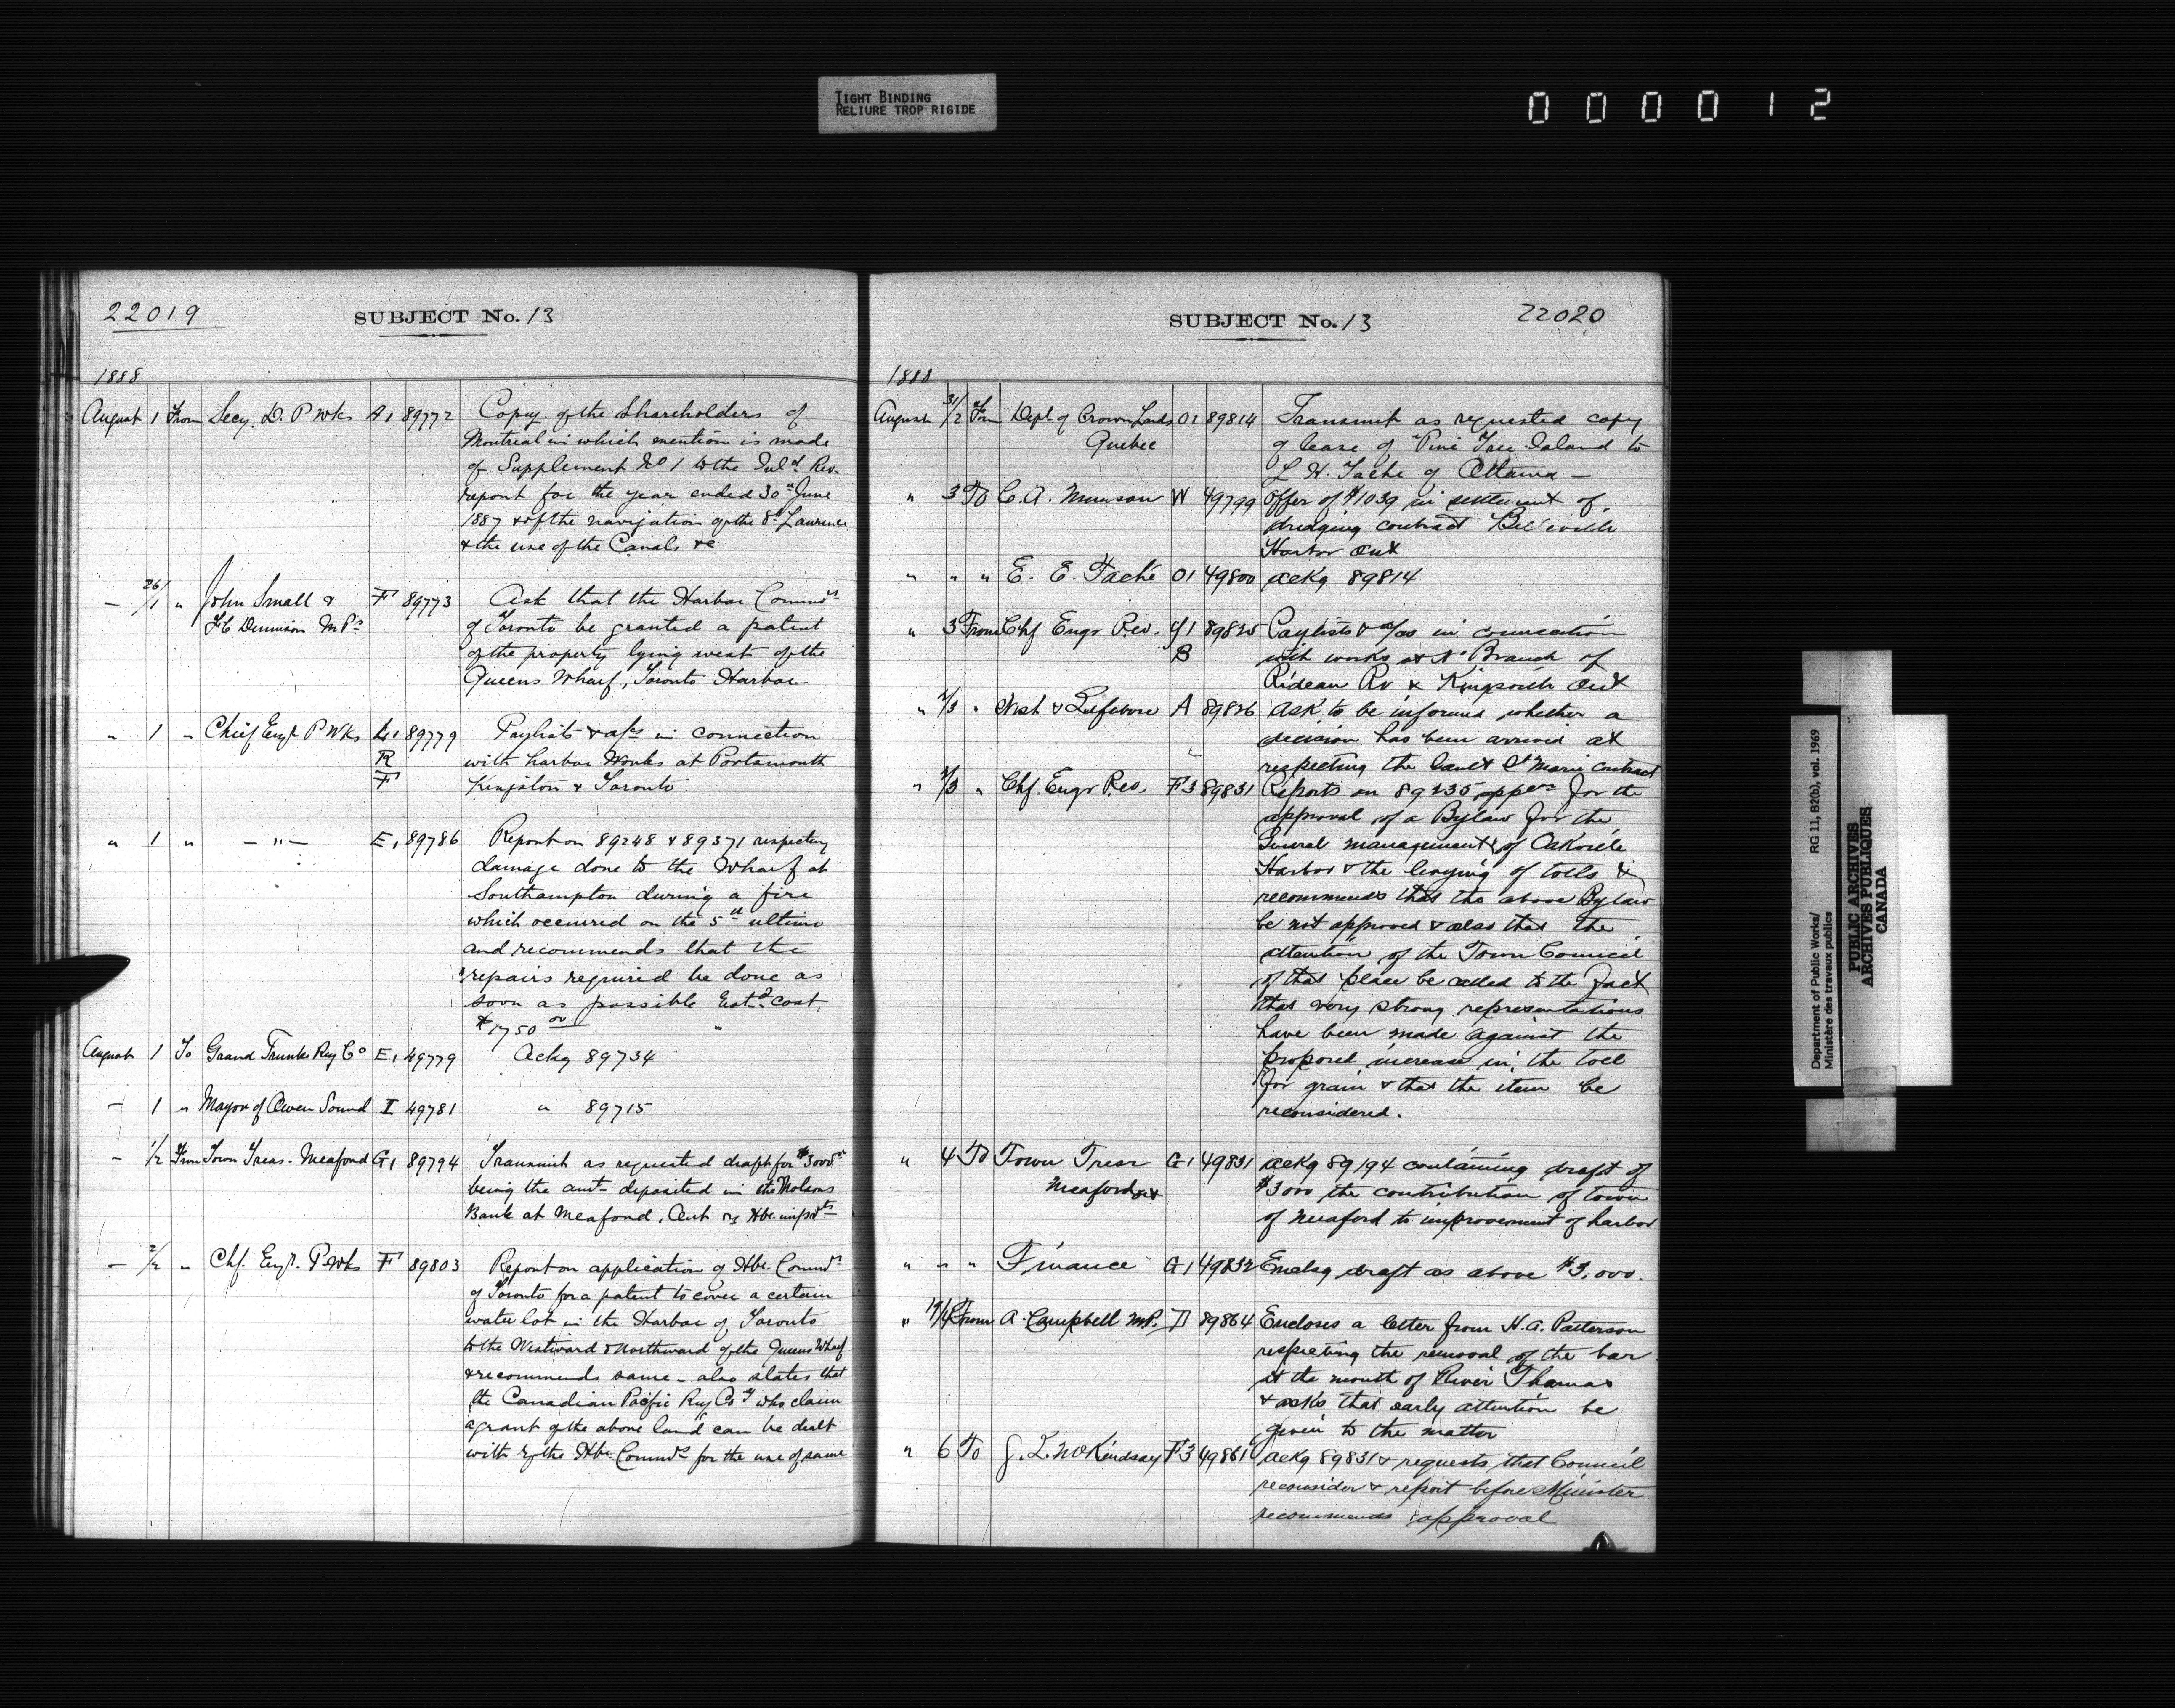 TIGHT BINDING
RELIURE TROP RIGIDE
0 0 0 0 1 2
22019
SUBJECT No. 13
1888
August 1 From Secy. D. P Wks A1 89772 Copy of the Shareholders of
Montreal in which mention is made
of Supplement No 1 to the Inld. Rev.
report for the year ended 30th June
1887 & of the navigation of the St Lawrence
& the use of the Canals &c
— 26/1 " John Small & F 89773 Ask that the Harbor Commrs
F C Dennison M Ps of Toronto be granted a patent
of the property lying west of the
Queens Wharf, Toronto Harbor.
" 1 " Chief Engr P Wks L1 89779 Paylists & a/cs in connection
R with harbor Works at Portsmouth
F Kingston & Toronto
" 1 " — " — E1 89786 Report on 89248 & 89371 respecting
damage done to the Wharf at
Southampton during a fire
which occurred on the 5th ultimo
and recommends that the
repairs required be done as
soon as possible Estd cost,
$1750 00
August 1 To Grand Trunk Ry Co E1 49779 Ackg 89734
— 1 " Mayor of Owen Sound I 49781 " 89715
— 1/2 From Town Treas. Meaford G1 89794 Transmit as requested draft for $3000
being the amt deposited in the Molsons
Bank at Meaford, Ont re Hbr. improts
— 2/2 " Chf. Engr. P Wks F 89803 Report on application of Hbr. Commrs
of Toronto for a patent to cover a certain
water lot in the Harbor of Toronto
to the Westward & Northward of the Queens Wharf
& recommends same — also states that
the Canadian Pacific Ry Coy who claim
a grant of the above land can be dealt
with by the Hbr. Commrs for the use of same
SUBJECT No. 13
22020
1888
August 31/2 From Dept of Crown Lands O1 89814 Transmit as requested copy
Quebec of lease of "Pine Tree Island to
L H. Tache of Ottawa —
" 3 To C. A. Munson W 49799 Offer of $1039 in settlement of
dredging contract Belleville
Harbor Ont
" " " E. E. Taché O1 49800 Ackg 89814
" 3 From Chf Engr Rev. Y1 89825 Paylists & a/cs in connection
B with works at No Branch of
Rideau Rv & Kingsville Ont
" 2/3 " & Lefebvre A 89826 Ask to be informed whether a
decision has been arrived at
respecting the Sault St Marie contract
" 2/3 " Chf. Engr Rev. F3 89831 Reports on 89235 for the
approval of a Bylaw for the
General management of Oakville
Harbor & the levying of tolls &
recommends that the above Bylaw
be not approved & also that the
attention of the Town Council
of that place be called to the fact
that very strong representations
have been made against the
proposed increase in the toll
for grain & that the item be
reconsidered.
" 4 To Town Tresr G1 49831 Ackg 89194 containing draft of
Meaford Ont $3000 the contribution of town
of Meaford to improvement of harbor
" " " Finance G1 49832 Enclsg draft as above $3,000.
" From A. Campbell MP. D 89864 Encloses a letter from H. A. Patterson
respecting the removal of the bar
at the mouth of River Thames
& asks that early attention be
given to the matter
" 6 To McKindsay F3 49861 Ackg 89831 & requests that Council
reconsider & report before Minister
recommends approval
Department of Public Works/
Ministère des travaux publics
RG 11, B2(b), vol. 1969
PUBLIC ARCHIVES
ARCHIVES PUBLIQUES
CANADA